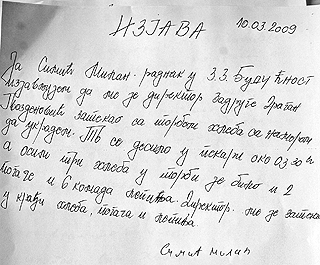 ИЗЈАВА 10.03.2009
Ја Симић Милан. радник у З.З. Будућност
изјављујем да ме је директор задруге Драган
Гвозденовић затекао са торбом хлеба са намером
да украдем. То се десило у пекари око 03 30 h
а осим три хлеба у торби је било и 2
погаче и 6 комада лепиња. Директор. ме је затекао
у крађи хлеба, погача и лепиња.
Симић Милан